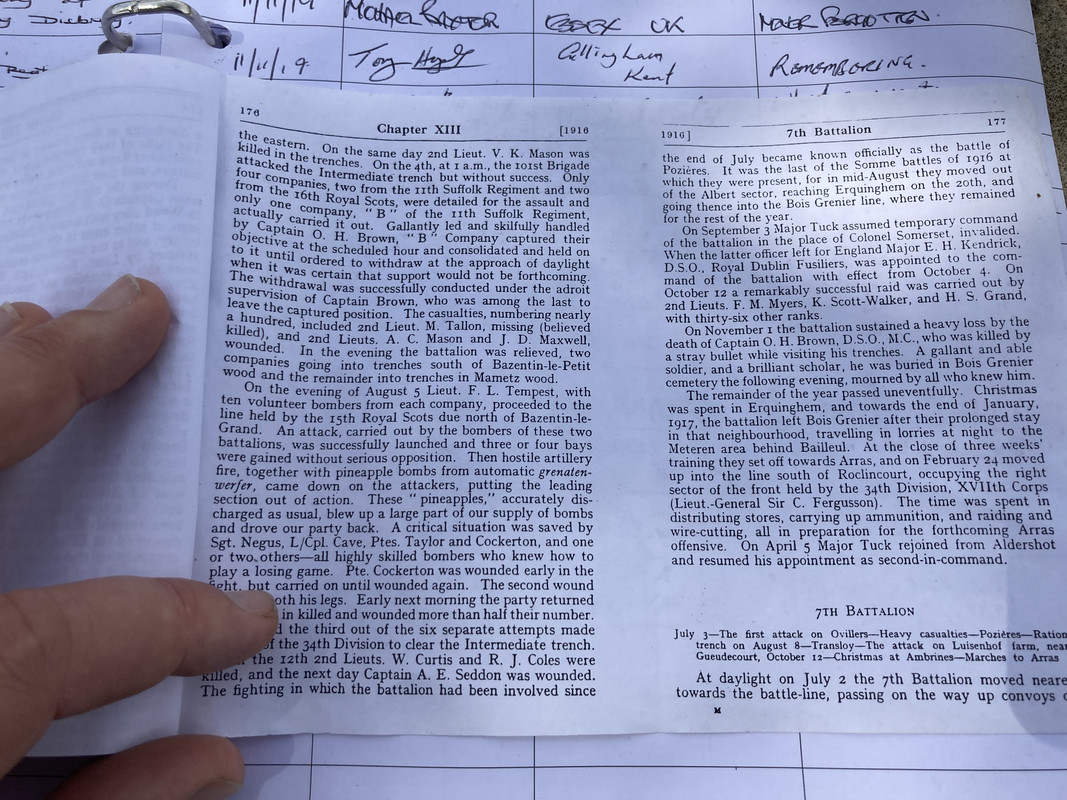 11/11/19
UK
11/11/19 Tony Kent REMEMBERING.
176 Chapter XIII [1916
the eastern. On the same day 2nd Lieut. V. K. Mason was
killed in the trenches. On the 4th, at 1 a.m., the 101st Brigade
attacked the Intermediate trench but without success. Only
four companies, two from the 11th Suffolk Regiment and two
from the 16th Royal Scots, were detailed for the assault and
only one company, "B" of the 11th Suffolk Regiment,
actually carried it out. Gallantly led and skilfully handled
by Captain O. H. Brown, "B" Company captured their
objective at the scheduled hour and consolidated and held on
to it until ordered to withdraw at the approach of daylight
when it was certain that support would not be forthcoming.
The withdrawal was successfully conducted under the adroit
supervision of Captain Brown, who was among the last to
leave the captured position. The casualties, numbering nearly
a hundred, included 2nd Lieut. M. Tallon, missing (believed
killed), and 2nd Lieuts. A. C. Mason and J. D. Maxwell,
wounded. In the evening the battalion was relieved, two
companies going into trenches south of Bazentin-le-Petit
wood and the remainder into trenches in Mametz wood.
On the evening of August 5 Lieut. F. L. Tempest, with
ten volunteer bombers from each company, proceeded to the
line held by the 15th Royal Scots due north of Bazentin-le-
Grand. An attack, carried out by the bombers of these two
battalions, was successfully launched and three or four bays
were gained without serious opposition. Then hostile artillery
fire, together with pineapple bombs from automatic grenaten-
werfer, came down on the attackers, putting the leading
section out of action. These "pineapples," accurately dis-
charged as usual, blew up a large part of our supply of bombs
and drove our party back. A critical situation was saved by
Sgt. Negus, L/Cpl. Cave, Ptes. Taylor and Cockerton, and one
or two others—all highly skilled bombers who knew how to
play a losing game. Pte. Cockerton was wounded early in the
fight, but carried on until wounded again. The second wound
oth his legs. Early next morning the party returned
in killed and wounded more than half their number.
d the third out of the six separate attempts made
of the 34th Division to clear the Intermediate trench.
the 12th 2nd Lieuts. W. Curtis and R. J. Coles were
killed, and the next day Captain A. E. Seddon was wounded.
The fighting in which the battalion had been involved since
1916] 7th Battalion 177
the end of July became known officially as the battle of
Pozières. It was the last of the Somme battles of 1916 at
which they were present, for in mid-August they moved out
of the Albert sector, reaching Erquinghem on the 20th, and
going thence into the Bois Grenier line, where they remained
for the rest of the year.
On September 3 Major Tuck assumed temporary command
of the battalion in the place of Colonel Somerset, invalided.
When the latter officer left for England Major E. H. Kendrick,
D.S.O., Royal Dublin Fusiliers, was appointed to the com-
mand of the battalion with effect from October 4. On
October 12 a remarkably successful raid was carried out by
2nd Lieuts. F. M. Myers, K. Scott-Walker, and H. S. Grand,
with thirty-six other ranks.
On November 1 the battalion sustained a heavy loss by the
death of Captain O. H. Brown, D.S.O., M.C., who was killed by
a stray bullet while visiting his trenches. A gallant and able
soldier, and a brilliant scholar, he was buried in Bois Grenier
cemetery the following evening, mourned by all who knew him.
The remainder of the year passed uneventfully. Christmas
was spent in Erquinghem, and towards the end of January,
1917, the battalion left Bois Grenier after their prolonged stay
in that neighbourhood, travelling in lorries at night to the
Meteren area behind Bailleul. At the close of three weeks'
training they set off towards Arras, and on February 24 moved
up into the line south of Roclincourt, occupying the right
sector of the front held by the 34th Division, XVIIth Corps
(Lieut.-General Sir C. Fergusson). The time was spent in
distributing stores, carrying up ammunition, and raiding and
wire-cutting, all in preparation for the forthcoming Arras
offensive. On April 5 Major Tuck rejoined from Aldershot
and resumed his appointment as second-in-command.
7TH BATTALION
July 3—The first attack on Ovillers—Heavy casualties—Pozières—Ration
trench on August 8—Transloy—The attack on Luisenhof farm, near
Gueudecourt, October 12—Christmas at Ambrines—Marches to Arras
At daylight on July 2 the 7th Battalion moved neare
towards the battle-line, passing on the way up convoys
M